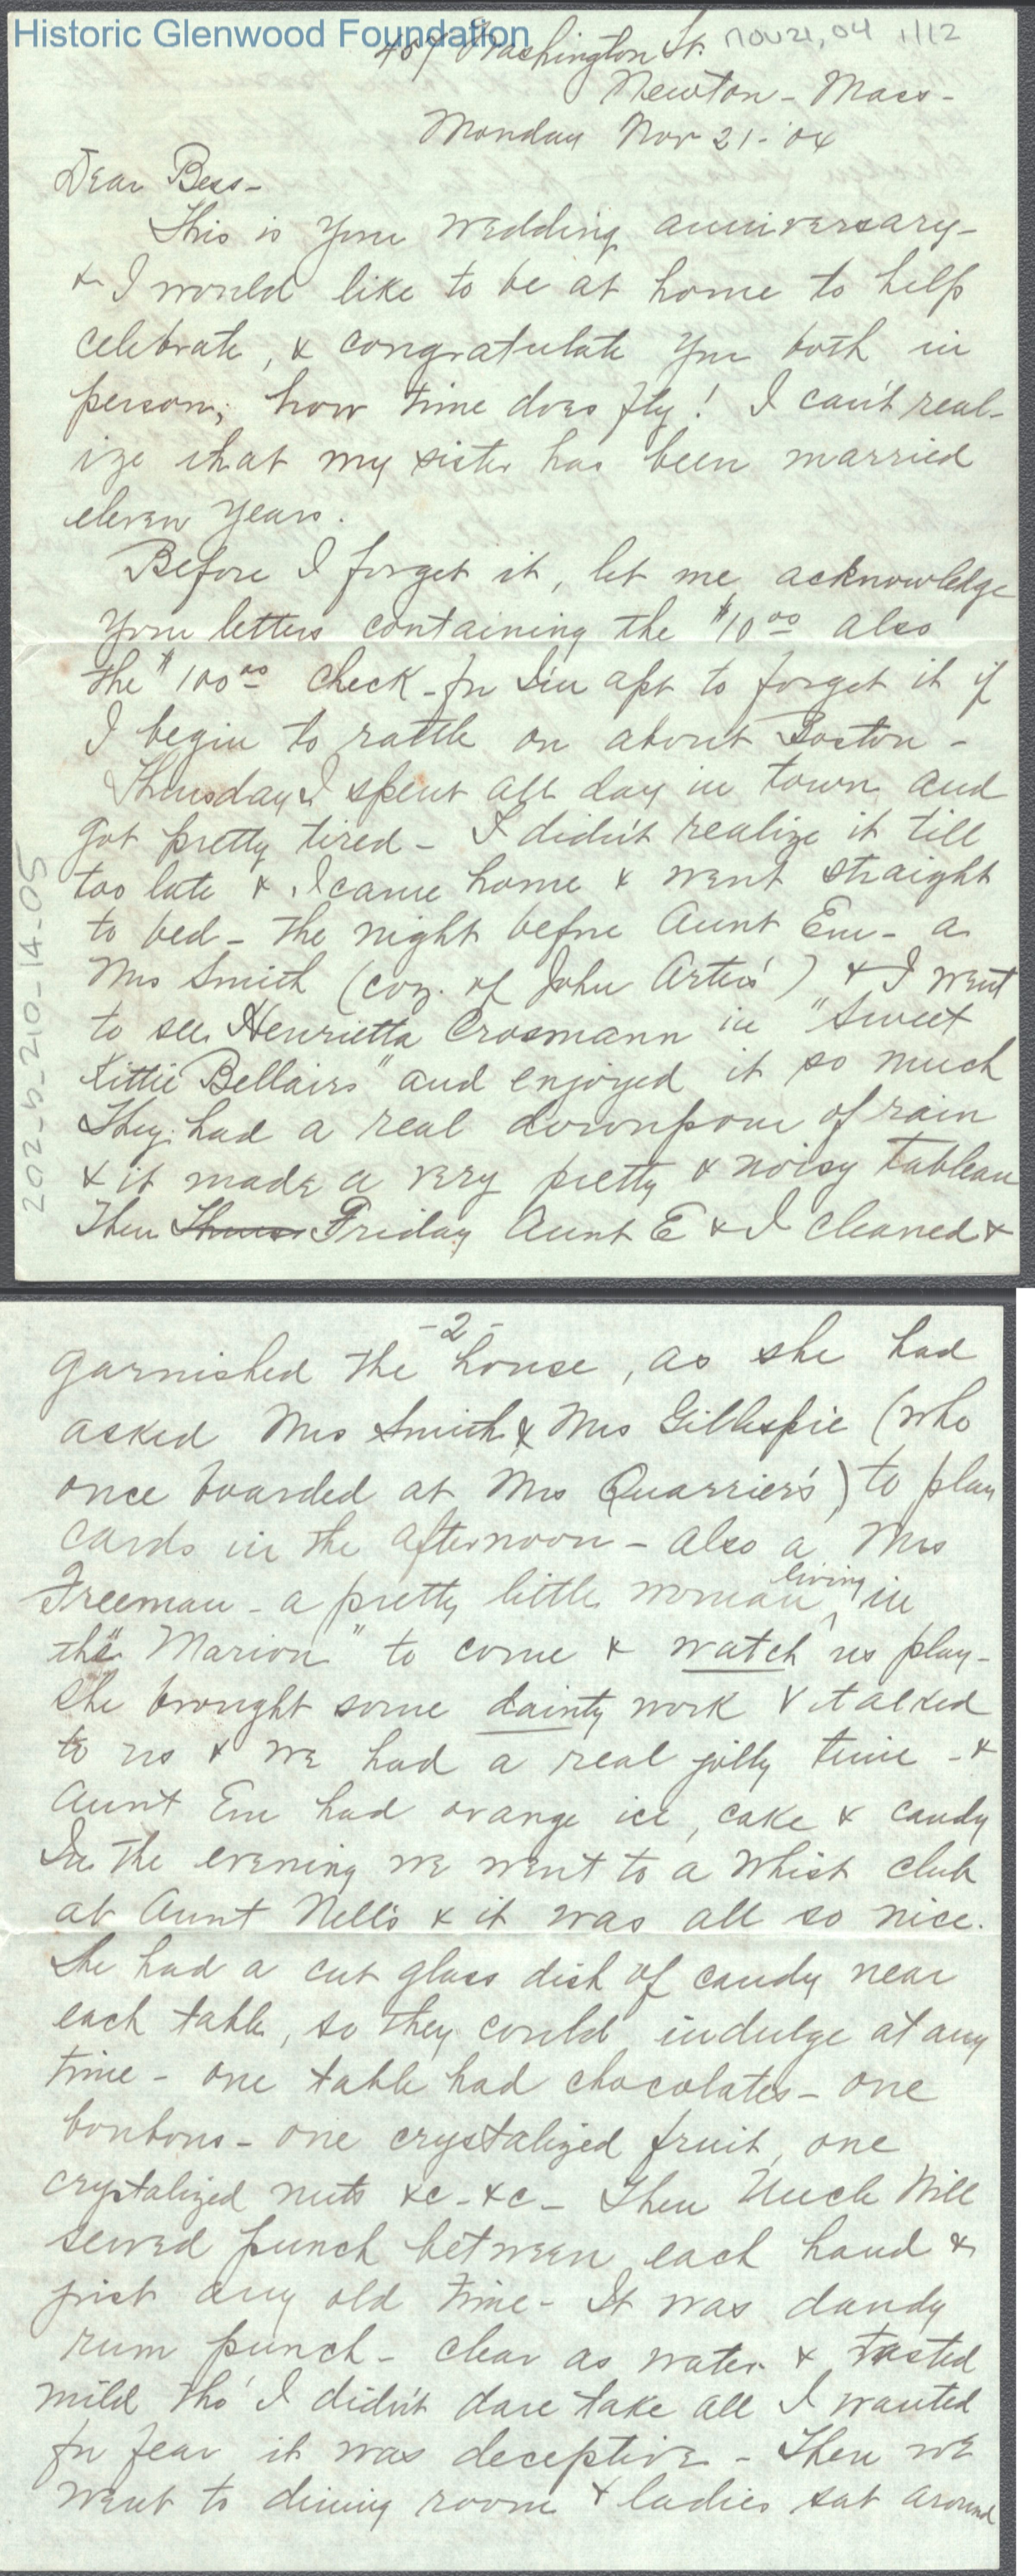 Historic Glenwood Foundation
Nov 21, 04 1/12
Washington St.
Newton - Mass -
Monday Nov 21 - '04
Dear Bess -
This is your wedding anniversary -
& I would like to be at home to help
celebrate, & congratulate you both in
person; how time does fly! I can't real-
ize that my sister has been married
eleven years.
Before I forget it, let me acknowledge
your letters containing the $10 00 also
the $100 00 check - for I'm apt to forget it if
I begin to rattle on about Boston -
Thursday I spent all day in town and
got pretty tired - I didn't realize it till
too late & I came home & went straight
to bed - the night before Aunt Em - a
Mrs Smith (coz. of John Arter's) & I went
to see Henrietta Crosmann in "Sweet
Kittie Bellairs" and enjoyed it so much
They had a real downpour of rain
& it made a very pretty & noisy tableau
Then Thurs Friday Aunt E & I cleaned &
202-b-210-14-05
- 2 -
garnished the house, as she had
asked Mrs Smith & Mrs Gillespie (who
once boarded at Mrs Quarrier's) to play
cards in the afternoon - also a Mrs
Freeman - a pretty little woman living in
the "Marion" to come & watch us play -
She brought some dainty work & talked
to us & we had a real jolly time - &
Aunt Em had orange ice, cake & candy
In the evening we went to a whist club
at Aunt Nell's & it was all so nice.
She had a cut glass dish of candy near
each table, so they could indulge at any
time - one table had chocolates - one
bonbons - one crystalized fruit, one
crystalized nuts &c - &c - Then Uncle Will
served punch between each hand &
just any old time - It was dandy
rum punch - clear as water & tasted
mild tho' I didn't dare take all I wanted
for fear it was deceptive - Then we
went to dining room & ladies sat around